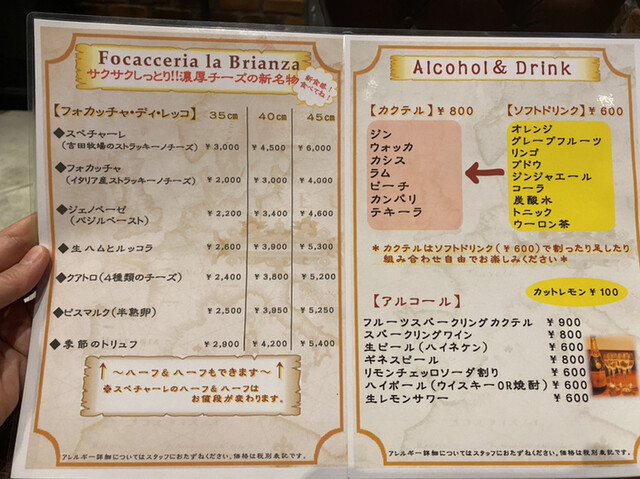 Focacceria la Brianza
サクサクしっとり!!濃厚チーズの新名物
新食感！
食べてね！
【フォカッチャ・ディ・レッコ】 35㎝ 40㎝ 45㎝
◆スペチャーレ
(吉田牧場のストラッキーノチーズ) ¥3,000 ¥4,500 ¥6,000
◆フォカッチャ
(イタリア産ストラッキーノチーズ) ¥2,000 ¥3,000 ¥4,000
◆ジェノベーゼ
(バジルペースト) ¥2,200 ¥3,400 ¥4,600
◆生ハムとルッコラ ¥2,600 ¥3,900 ¥5,300
◆クアトロ(4種類のチーズ) ¥2,400 ¥3,800 ¥5,200
◆ビスマルク(半熟卵) ¥2,500 ¥3,950 ¥5,250
◆季節のトリュフ ¥2,900 ¥4,200 ¥5,400
↑ 〜ハーフ＆ハーフもできます〜 ↑
※スペチャーレのハーフ＆ハーフは
お値段が変わります。
アレルギー詳細についてはスタッフにおたずねください。価格は税別表記です。
Alcohol & Drink
【カクテル】¥800
ジン
ウォッカ
カシス
ラム
ピーチ
カンパリ
テキーラ
【ソフトドリンク】¥600
オレンジ
グレープフルーツ
リンゴ
ブドウ
ジンジャエール
コーラ
炭酸水
トニック
ウーロン茶
＊カクテルはソフトドリンク(¥600)で割ったり足したり
組み合わせ自由でお楽しみください＊
カットレモン¥100
【アルコール】
フルーツスパークリングカクテル ¥900
スパークリングワイン ¥800
生ビール(ハイネケン) ¥600
ギネスビール ¥800
リモンチェッロソーダ割り ¥600
ハイボール(ウイスキーOR焼酎) ¥600
生レモンサワー ¥600
アレルギー詳細についてはスタッフにおたずねください。価格は税別表記です。